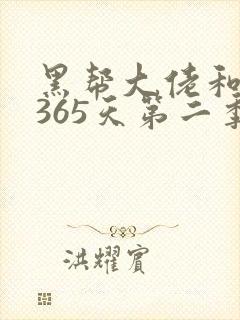 黑帮大佬和
365天第二季
洪耀宾